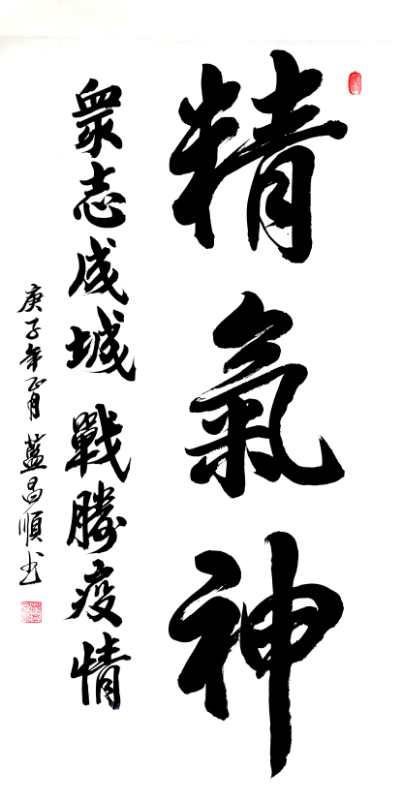 精氣神
衆志成城 戰勝疫情
庚子年正月 藍昌順书